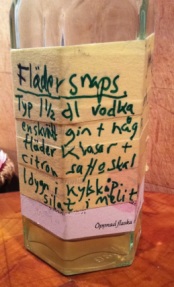 Flädersnaps
Typ 1½ dl vodka
enskänk gin + någ
fläder klasar +
citron saft o skal
1 dygn i kylskåp
silat i
Öppnad flaska